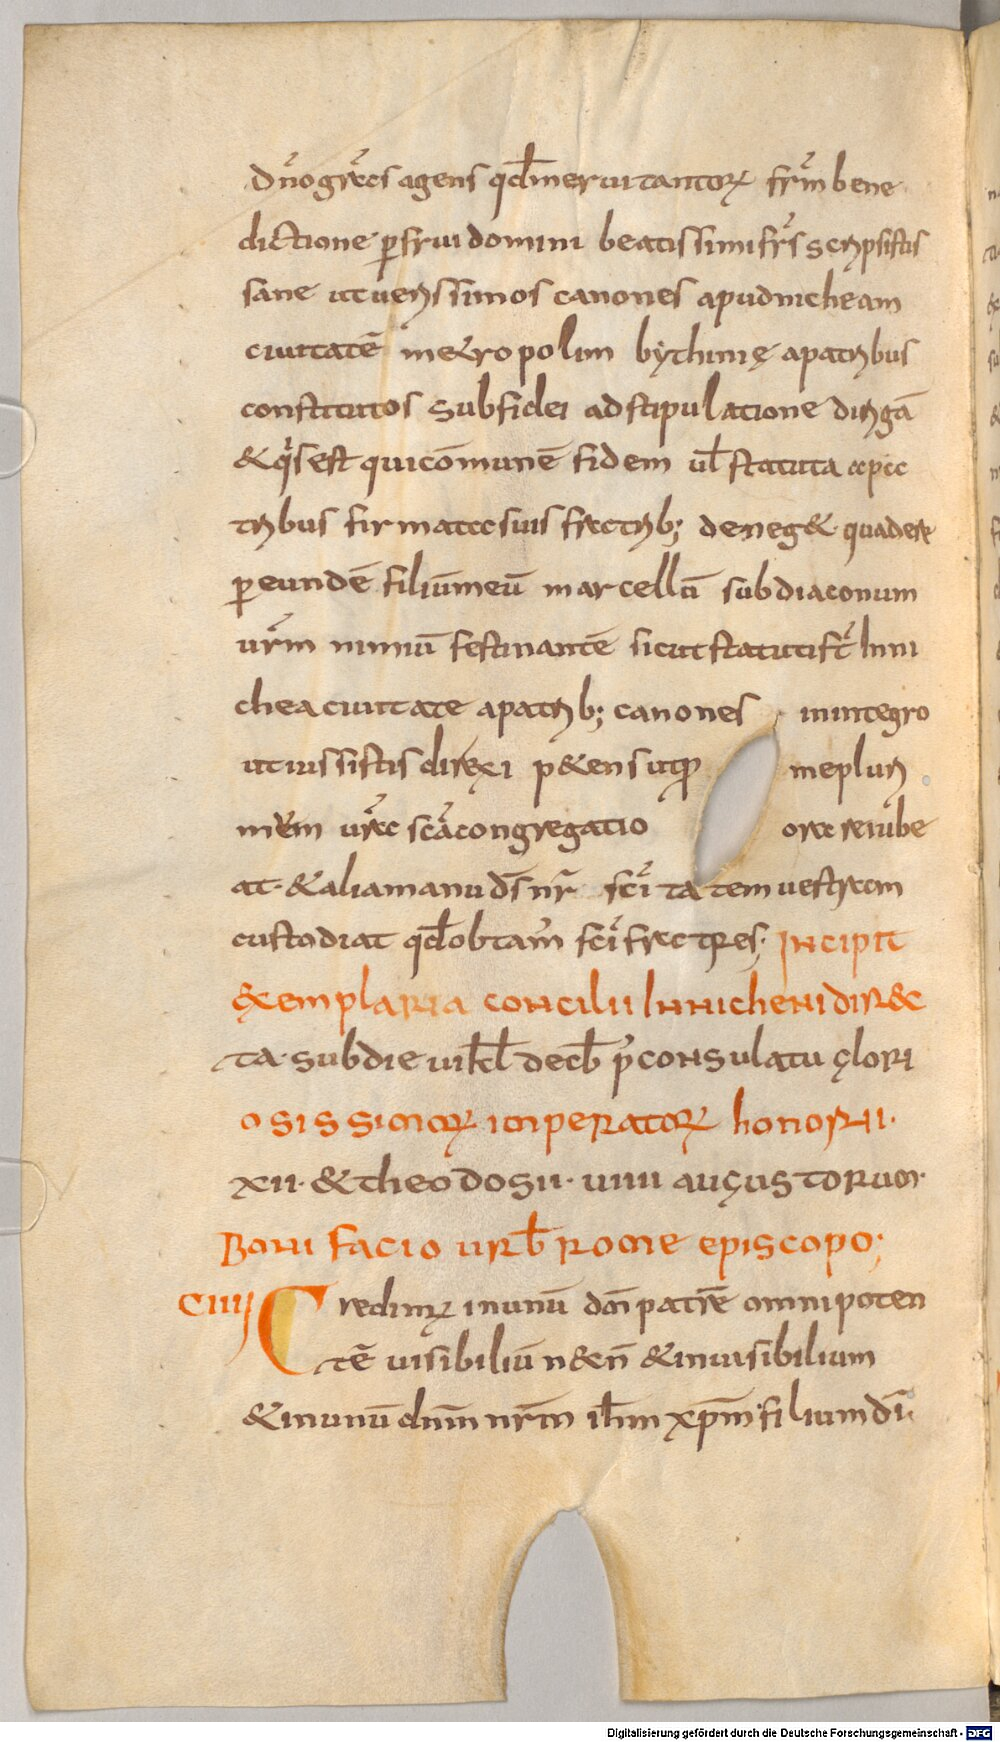 dño grãcs agens qđ merui tantorꝝ frm̃ bene
dictione ꝑfrui domini beatissimi frs̃ scripsistis
sane ut uerissimos canones apud nicheam
ciuitatē m&ropolim bythinię a patribus
constitutos sub fidei adstipulatione dirigā
& q̃s est qui cōmunē fidem ul̄ statuta a pa
tribus firmata suis fratrib; deneg& quadere
ꝑ eundē filiūmeū marcellū subdiaconum
ur̃m nimiū festinantē sicut statuti st̃ In ni
chea ciuitate a patrib; canones in integro
ut iussistis direxi p&ens utq̷ me pluri
mũm ur̃ac scãcongregatio orare iube
at· & alia manu ds̄ nr̃ sc̃i ta tem uestram
custodiat qđ obtam̃ sc̃i fratres; Incipit
exemplaria concilii In nicheni dir&c
ta· sub die ui kł decb̄ p̃ consulatu glori
osissimorꝝ imperatorꝝ honorii·
xii· & theodosii· uiiii augustorum·
Bonifacio urb̄ rome episcopo;
ciiij Credimꝰ in unū dm̄ patrē omnipoten
tē uisibiliū n&n̄ & inuisibilium
& in unū dnm̄ nrm̄ ihm̄ xpm̄ filium dī·
Digitalisierung gefördert durch die Deutsche Forschungsgemeinschaft - DFG